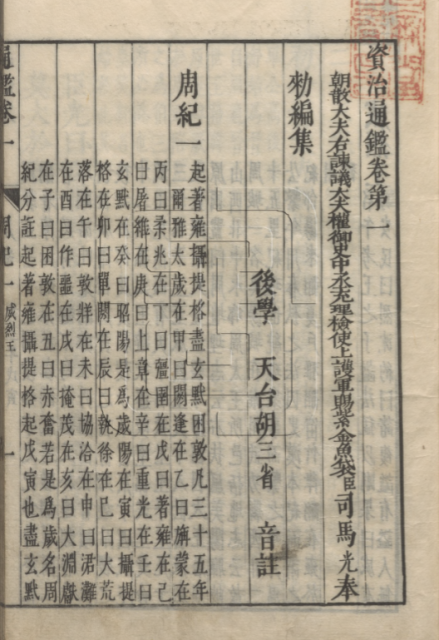 資治通鑑卷第一
朝散大夫右諫議大夫權御史中丞充理檢使上護軍賜紫金魚袋臣司馬光奉
勑編集
後學 天台胡三省 音註
周紀一 起著雍攝提格盡玄黓困敦凡三十五年
爾雅太歲在甲曰閼逢在乙曰旃蒙在
丙曰柔兆在丁曰彊圉在戊曰著雍在己
曰屠維在庚曰上章在辛曰重光在壬曰
玄黓在癸曰昭陽是為歲陽在寅曰攝提
格在卯曰單閼在辰曰執徐在巳曰大荒
落在午曰敦牂在未曰協洽在申曰涒灘
在酉曰作噩在戌曰掩茂在亥曰大淵獻
在子曰困敦在丑曰赤奮若是為歲名周
紀分註起著雍攝提格起戊寅也盡玄黓
通鑑卷一 周紀一 威烈王 一